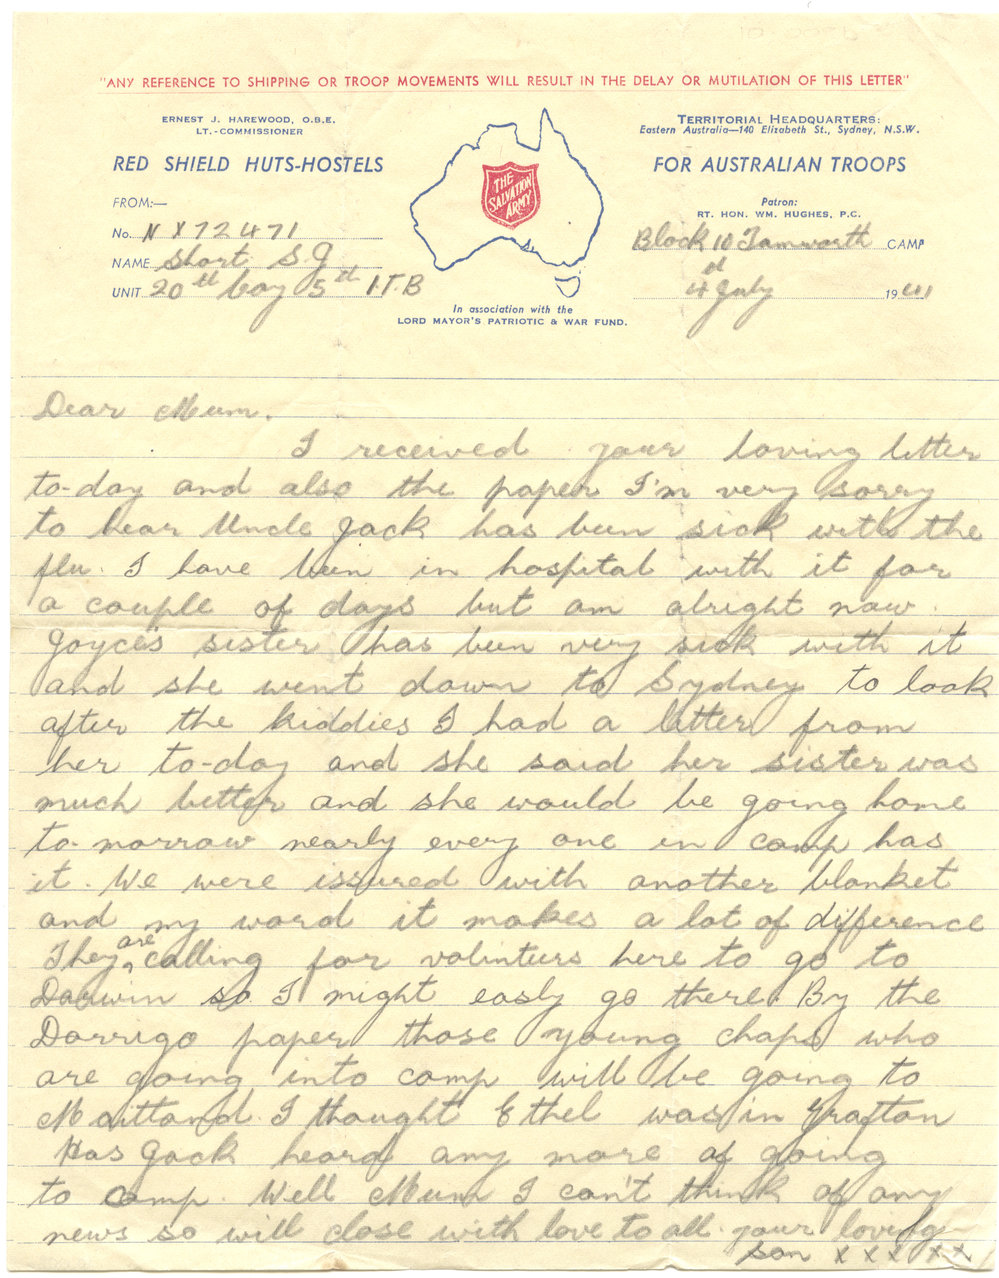 "ANY REFERENCE TO SHIPPING OR TROOP MOVEMENTS WILL RESULT IN THE DELAY OR MUTILATION OF THIS LETTER"
ERNEST J. HAREWOOD, O.B.E.
LT.-COMMISSIONER
RED SHIELD HUTS-HOSTELS
FROM:—
No. NX72471
NAME Short S.G
UNIT 20th Coy 5th I.T.B
THE
SALVATION
ARMY
In association with the
LORD MAYOR'S PATRIOTIC & WAR FUND.
TERRITORIAL HEADQUARTERS:
Eastern Australia—140 Elizabeth St., Sydney, N.S.W.
FOR AUSTRALIAN TROOPS
Patron:
RT. HON. WM. HUGHES, P.C.
Block 10 Tamworth CAMP
4th July 1941
Dear Mum.
I received your loving letter
to-day and also the paper I'm very sorry
to hear Uncle Jack has been sick with the
flu. I have been in hospital with it for
a couple of days but am alright now.
Joyce's sister has been very sick with it
and she went down to Sydney to look
after the kiddies I had a letter from
her to-day and she said her sister was
much better and she would be going home
to-morrow nearly every one in camp has
it. We were issured with another blanket
and my word it makes a lot of difference
They are calling for volinteers here to go to
Darwin so I might easly go there. By the
Dorrigo paper those young chaps who
are going into camp will be going to
Maitland. I thought Ethel was in Grafton
Has Jack heard any more of going
to camp. Well Mum I can't think of any
news so will close with love to all. your loving
son x x x x x